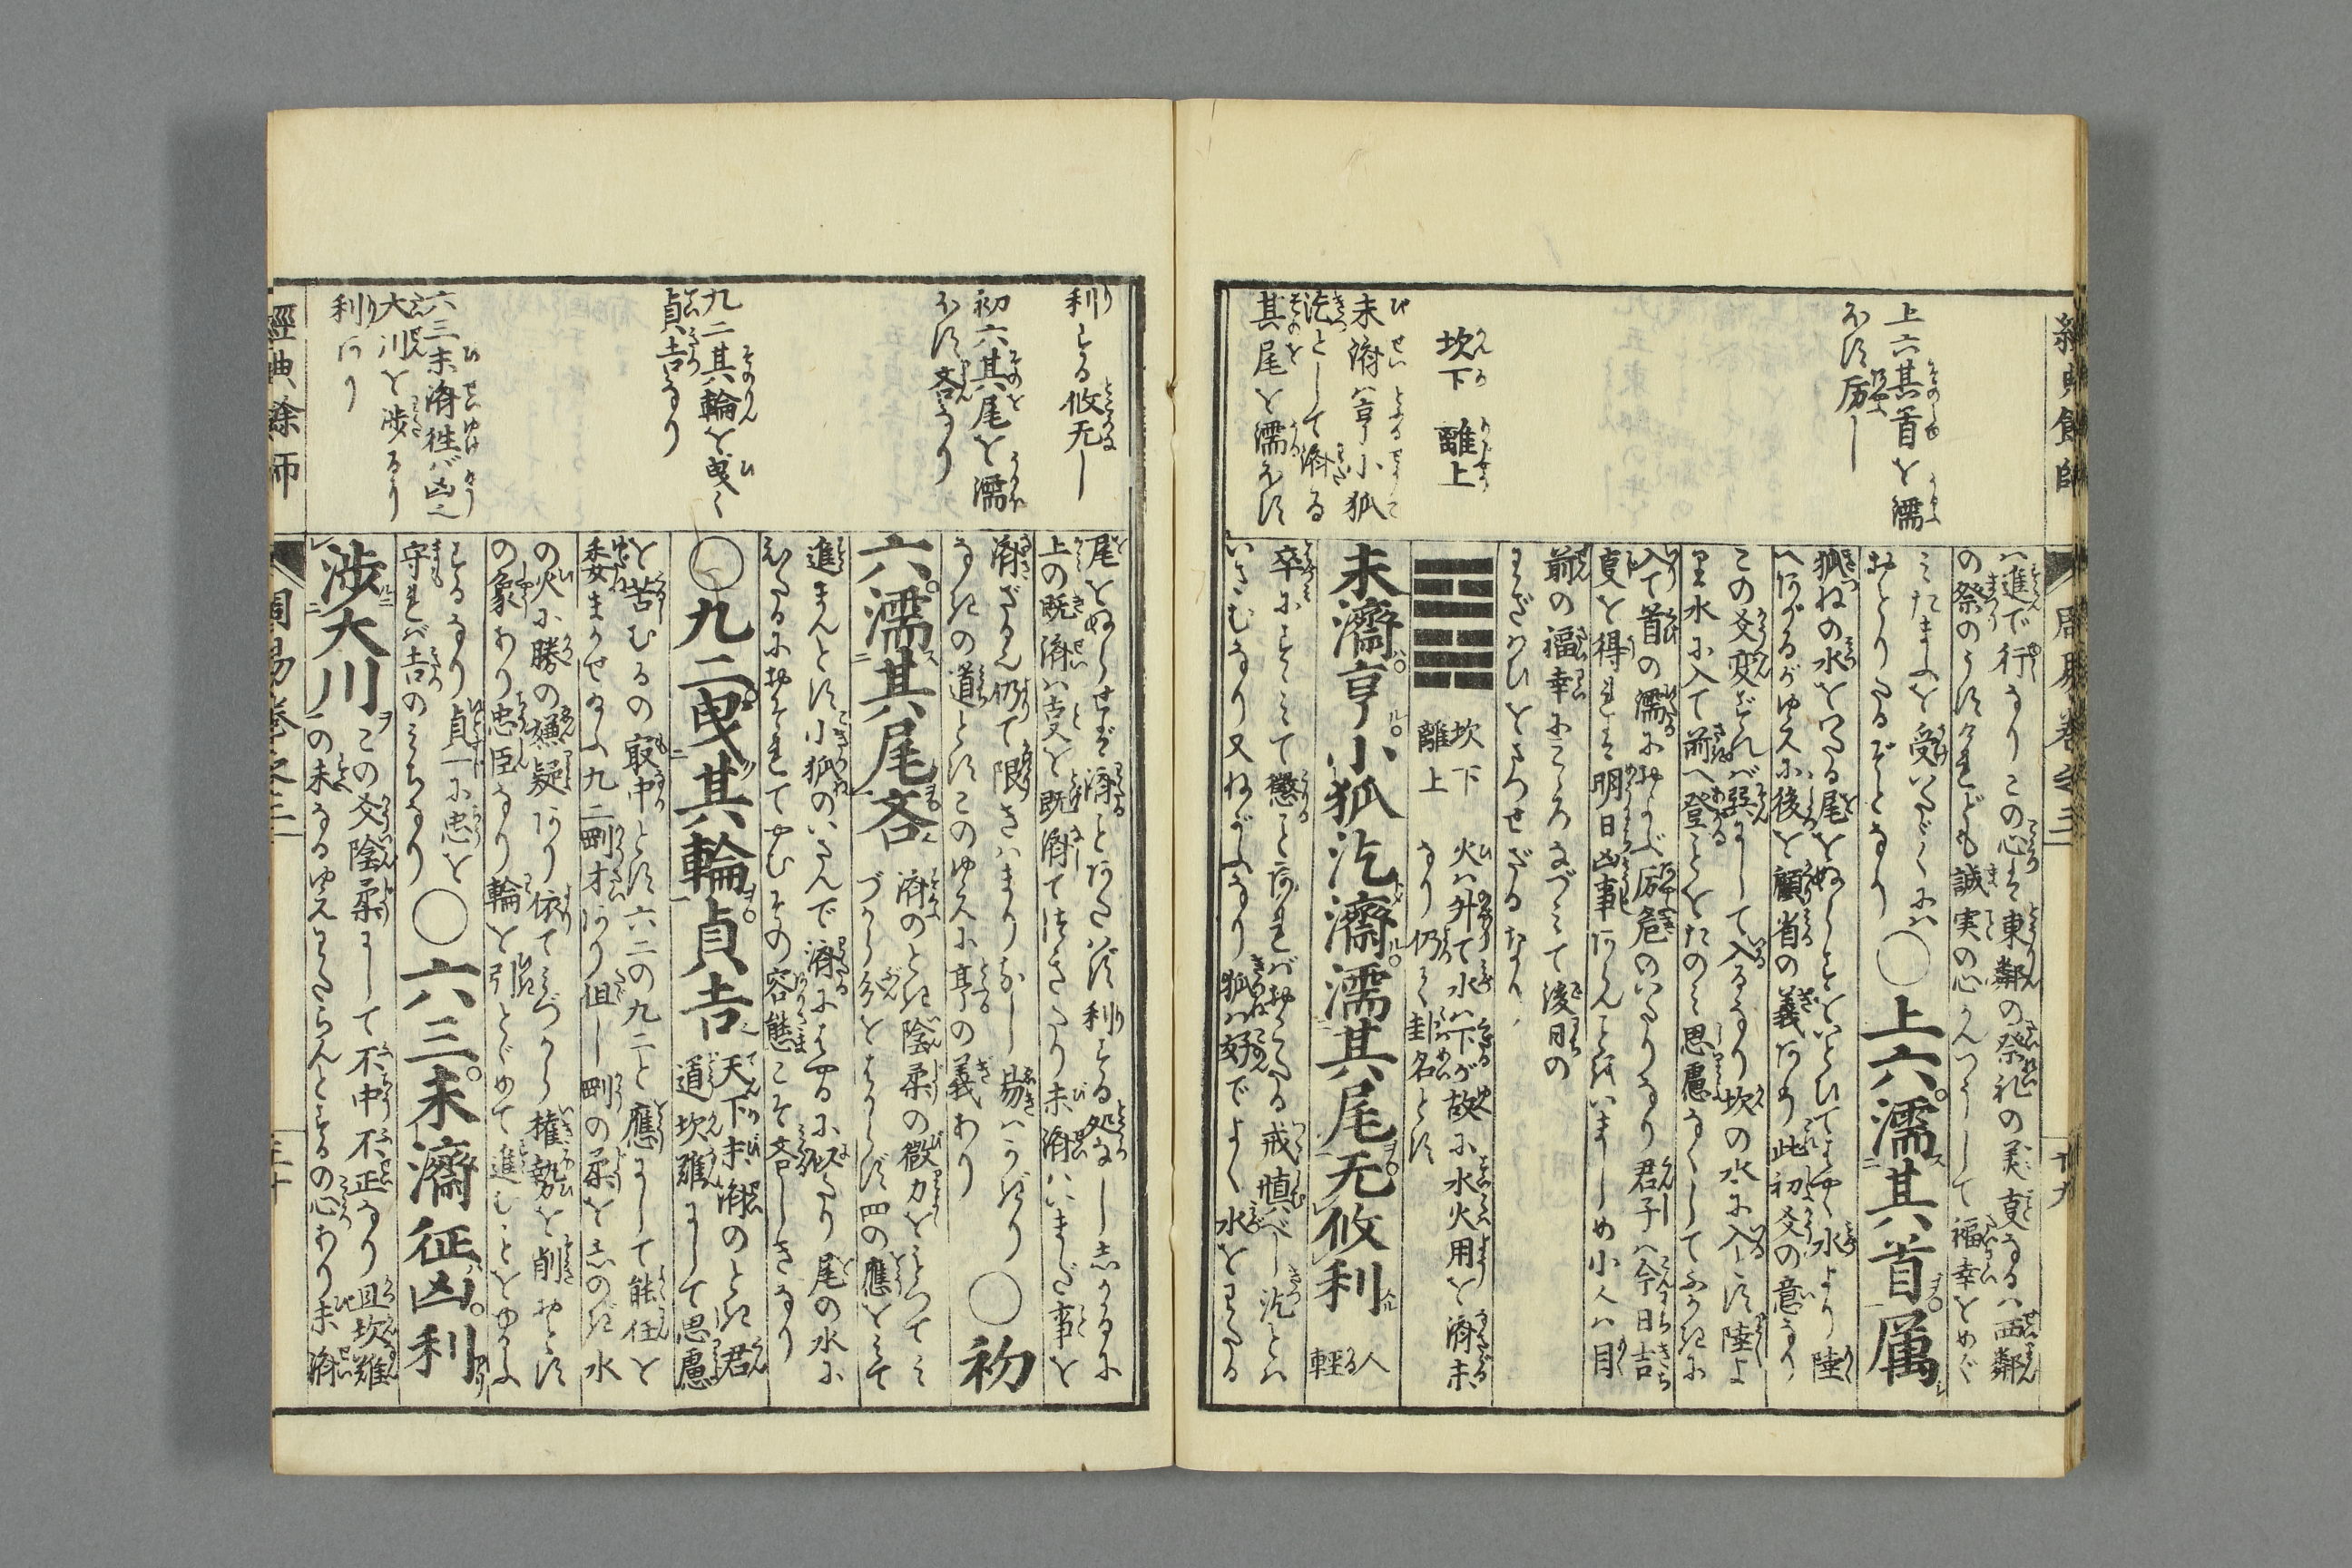 經典餘師
周易卷之三
廿九
上六其首を濡
ほす厉し
坎下 離上
未済は亨小狐
汔として済る
其尾を濡ほす
は進で行なりこの心は東鄰の祭礼の美叓なるは西鄰
の祭のうすけれども誠実の心かんつうして福幸をめぐ
みたまふを受いたゞくには
おとりたるぞとなり
○上六濡其首厲
狐ねの水をわたる尾をぬらすをいとひてはやく水より陸
へあがるがゆえに後を顧省の義あり此初爻の意なり
この爻変ずれば巽にして入るなり坎の水に入らず陸よ
り水に入て前へ登ことをたのみ思慮なくしてふかきに
入て首の濡におよぶ厉危のいたりなり君子は今日吉
叓を得れは明日凶事あらんことをいましめ小人は目
前の福幸にこゝろなづみて後日の
わざわひをさつせざるなり
坎下
離上
火は升て水は下が故に水火用を済未
なり仍て卦名とす
未濟亨小狐汔濟濡其尾无攸利
人
輕
卒にすゝみて懲と成ればおこたる戒慎べし汔とは
いさむなり又ねがふなり狐は好でよく水をわたる
利する攸无し
初六其尾を濡
ほす吝なり
九二其輪を曳く
貞吉なり
六三未済徃ば凶之
大川を渉るり
利あり
尾をぬらせば済とあたはず利する処なし志かるに
上の既済は叓を既済て はいまだ事を
済ざるん仍て限きはまりなし易はかぎり
なきの道とすこのゆえに亨の義あり
○初
六濡其尾吝
済のとき陰柔の微力をもつてみ
づから分をはからず四の應をみて
進まんとす小狐のいさんで済にはやるに似たり尾の水に
ぬたるにおそれてやむその容態こそ吝しきなり
○九二曳其輪貞吉
天下未済のとき君
道坎難にして思慮
を苦むるの最中とす六二の九二と應にして能任を
委まかせなふ九二剛才あり但し剛の柔を志のぎ水
の火に勝の嫌疑あり依てみづから権勢を削おとす
の象あり忠臣なり輪を引とゞめて進むことをゆるふ
するなり貞一に忠を
守れば吉のみちなり
○六三未濟征凶利
渉大川
この爻陰柔にして不中不正なり且坎難
の未なるゆえわたらんとするの心あり未済
經典餘師
周易卷之三
三十